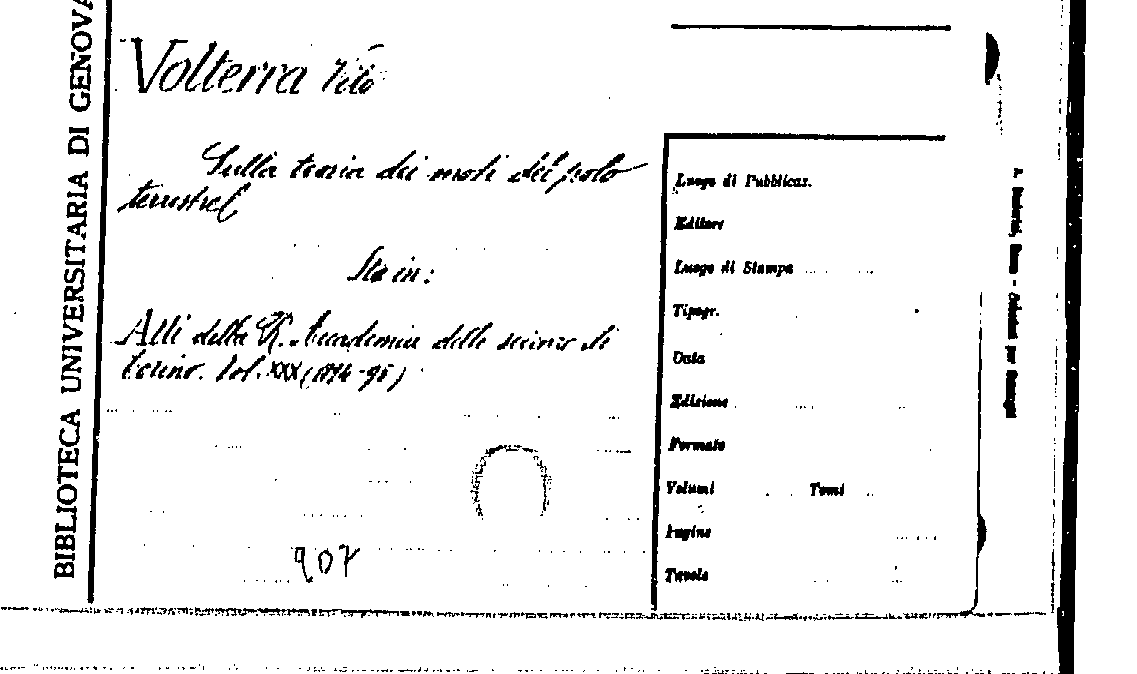 BIBLIOTECA UNIVERSITARIA DI GENOVA
Volterra Vito
Sulla teoria dei moti del polo
terrestre
Sta in:
Atti della R. Accademia delle scienze di
Torino. Vol. XXX (1894-95)
907
Luogo di Pubblicaz.
Editore
Luogo di Stampa
Tipogr.
Data
Edizione
Formato
Volumi Tomi
Pagine
Tavole